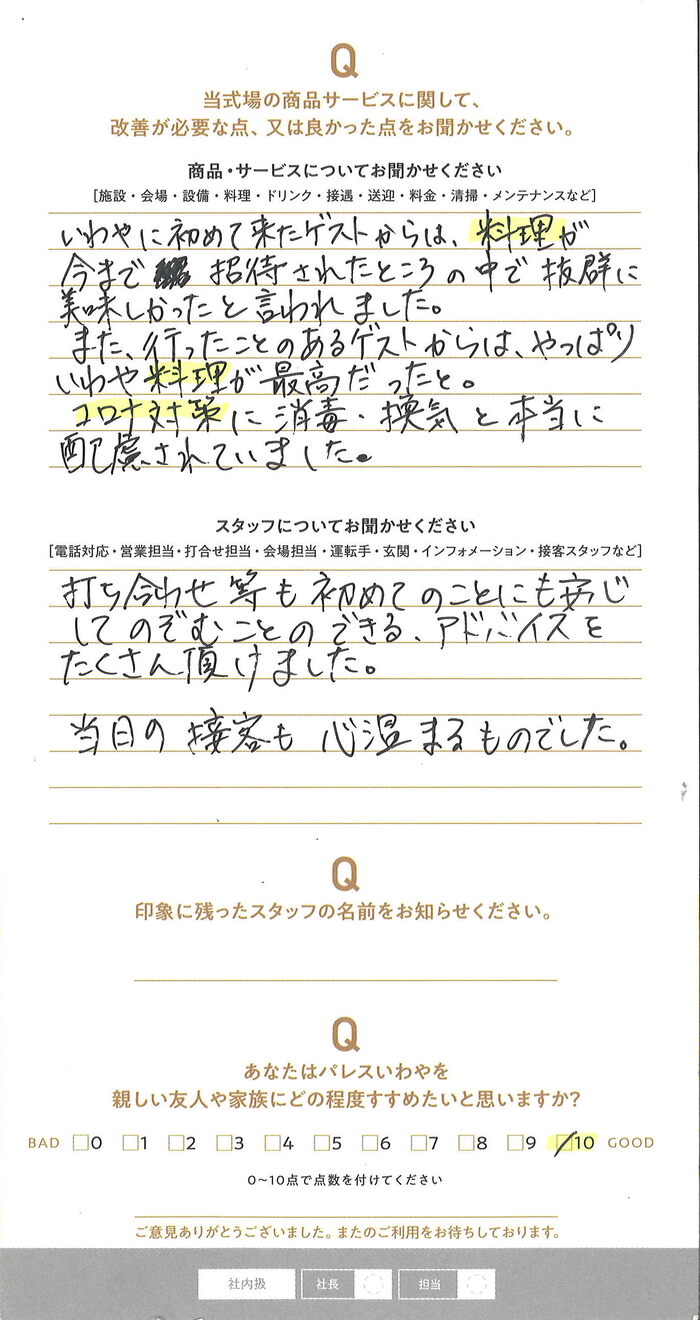 Q
当式場の商品サービスに関して、
改善が必要な点、又は良かった点をお聞かせください。
商品・サービスについてお聞かせください
[施設・会場・設備・料理・ドリンク・接遇・送迎・料金・清掃・メンテナンスなど]
いわやに初めて来たゲストからは、料理が
今まで 招待されたところの中で抜群に
美味しかったと言われました。
また、行ったことのあるゲストからは、やっぱり
いわや料理が最高だったと。
コロナ対策に消毒・換気と本当に
配慮されていました。
スタッフについてお聞かせください
[電話対応・営業担当・打合せ担当・会場担当・運転手・玄関・インフォメーション・接客スタッフなど]
打ち合わせ等も初めてのことにも安心
してのぞむことのできる、アドバイスを
たくさん頂けました。
当日の接客も心温まるものでした。
Q
印象に残ったスタッフの名前をお知らせください。
Q
あなたはパレスいわやを
親しい友人や家族にどの程度すすめたいと思いますか?
BAD □0 □1 □2 □3 □4 □5 □6 □7 □8 □9 ☑10 GOOD
0〜10点で点数を付けてください
ご意見ありがとうございました。またのご利用をお待ちしております。
社内扱 社長 担当